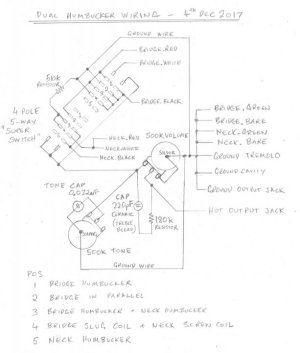 DUAL HUMBUCKER WIRING - 4TH DEC 2017
GROUND WIRE
BRIDGE, RED
BRIDGE, WHITE
RESISTOR
BRIDGE, BLACK
4 POLE
5-WAY
"SUPER
SWITCH"
NECK, RED
NECK, WHITE
NECK, BLACK
500K VOLUME
SOLDER
BRIDGE, GREEN
BRIDGE, BARE
NECK, GREEN
NECK, BARE
GROUND TREMOLO
GROUND CAVITY
GROUND OUTPUT JACK
HOT OUTPUT JACK
TONE CAP
0.022uF
CAP
220pF
CERAMIC
(TREBLE
BLEED)
180K
RESISTOR
SOLDER
500K TONE
GROUND WIRE
POS
1 BRIDGE HUMBUCKER
2 BRIDGE IN PARALLEL
3 BRIDGE HUMBUCKER + NECK HUMBUCKER
4 BRIDGE SLUG COIL + NECK SCREW COIL
5 NECK HUMBUCKER